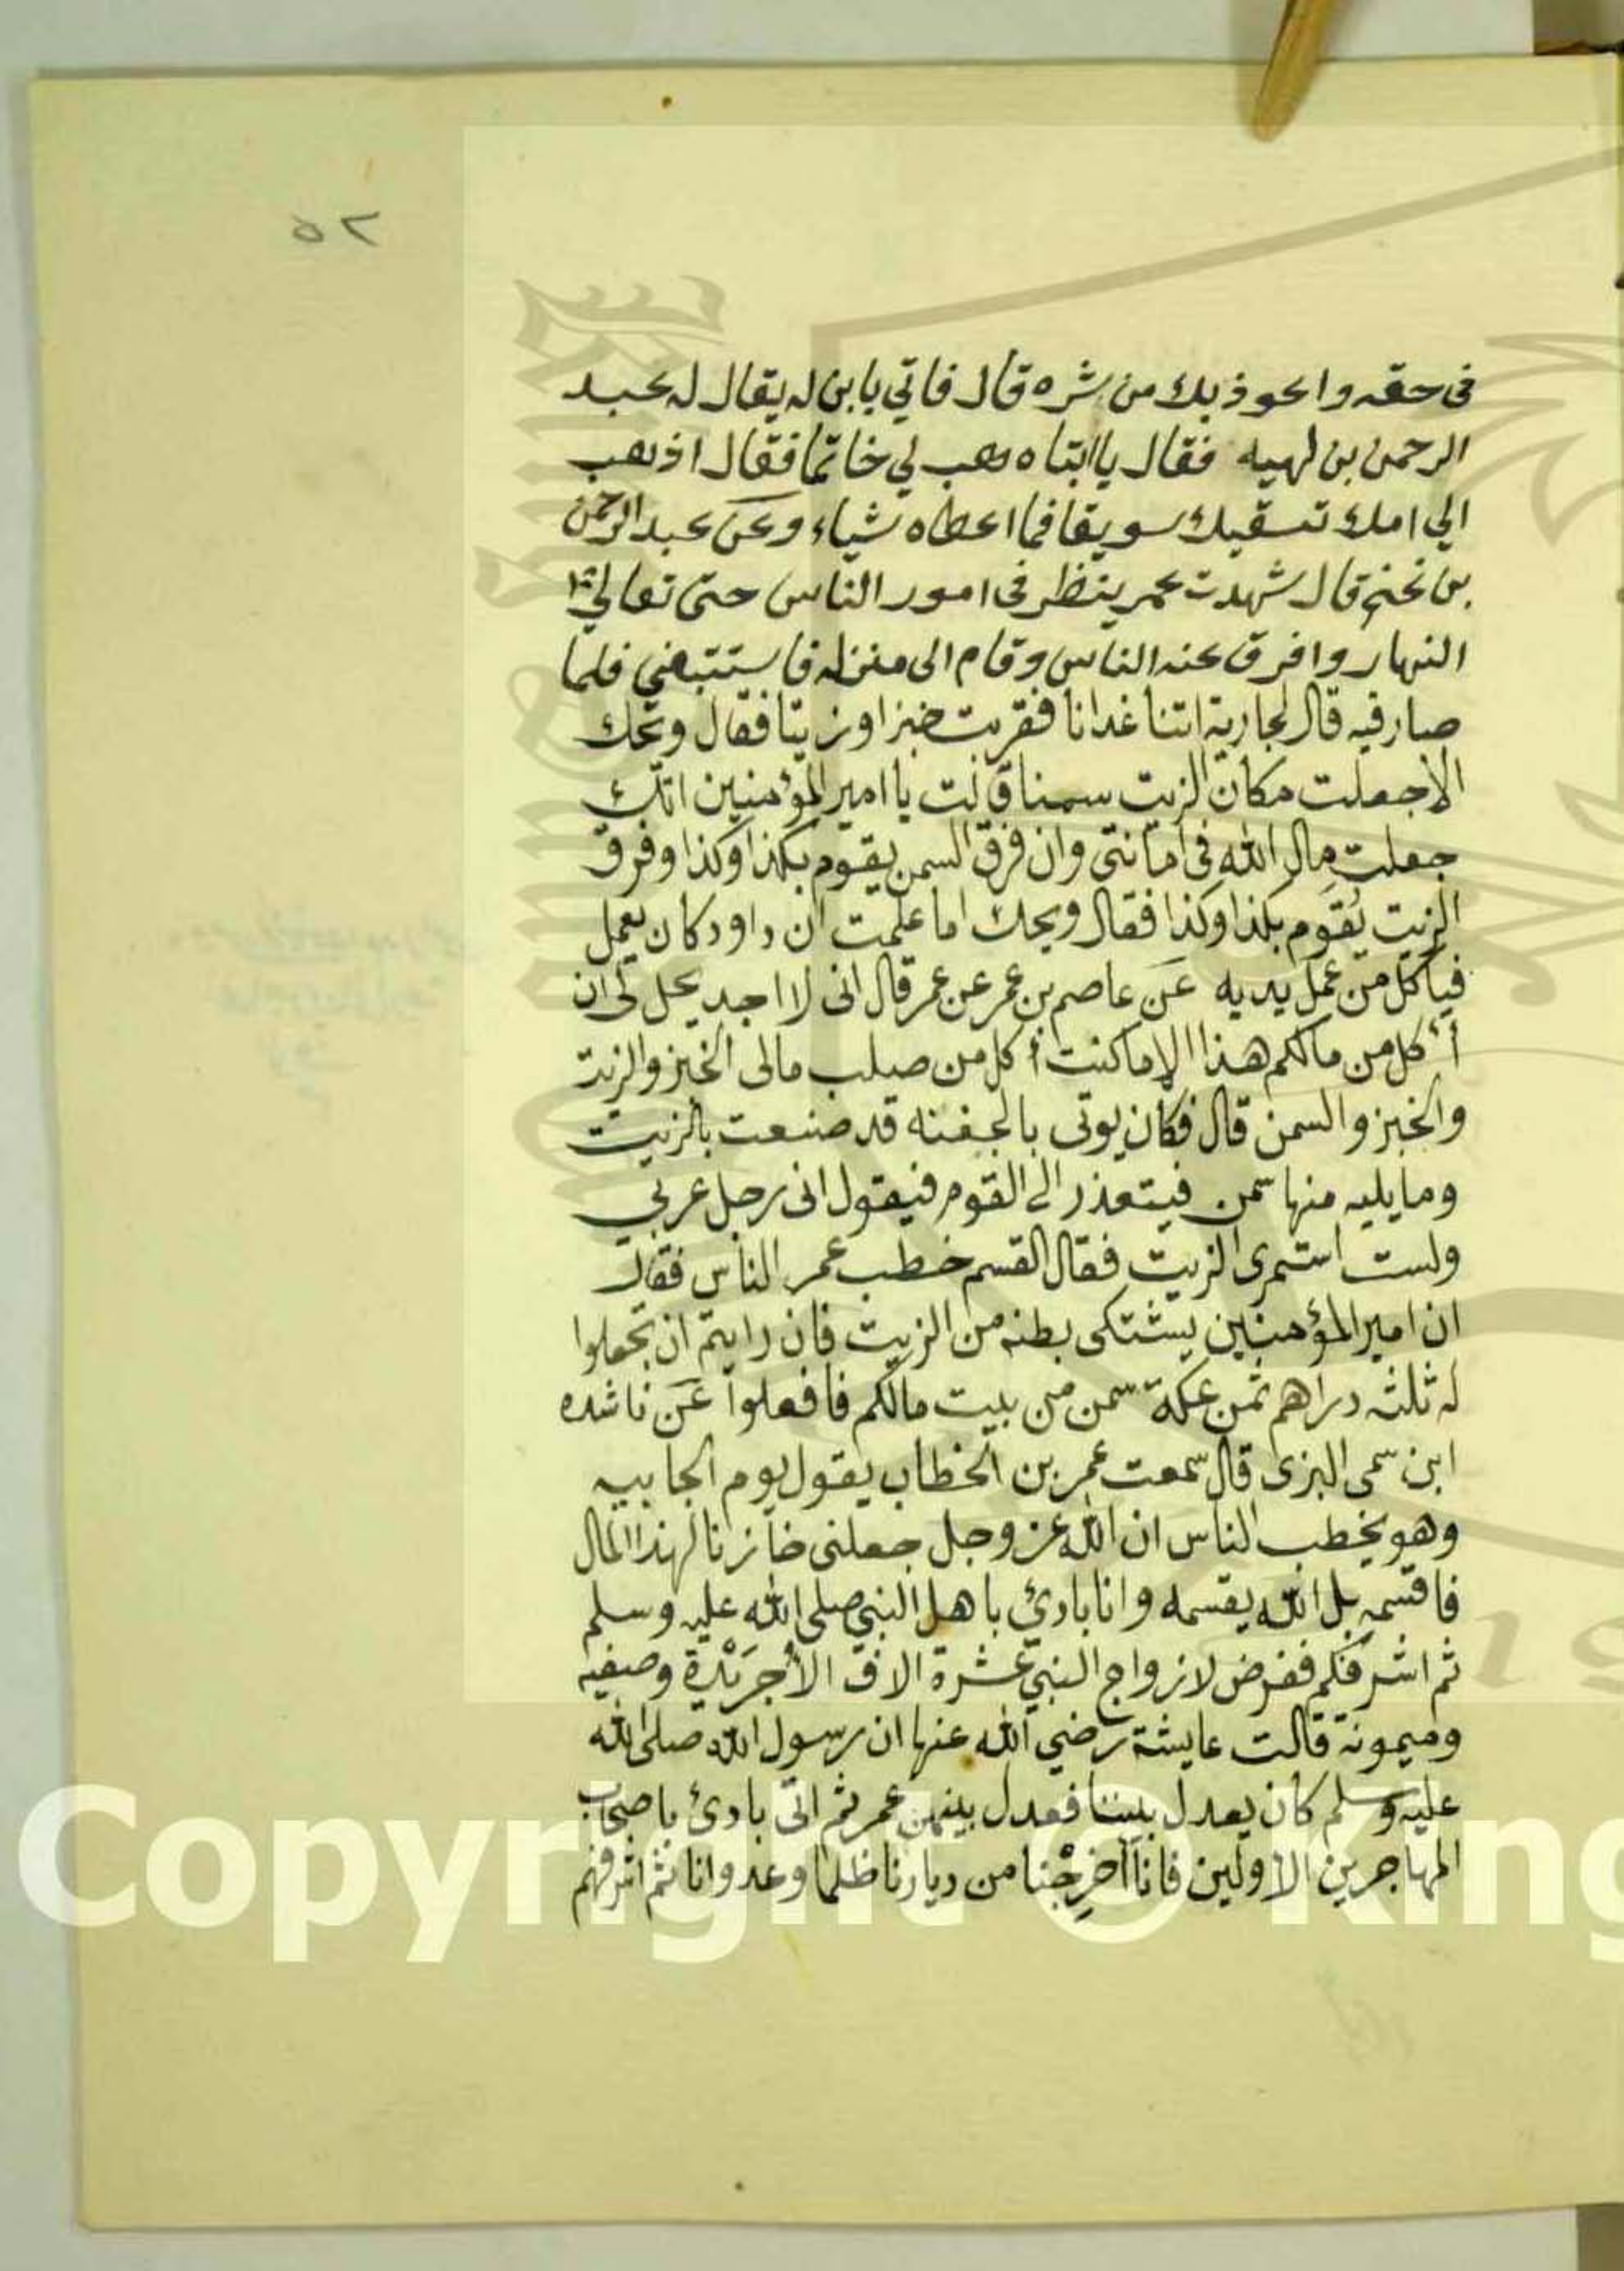 ٥٢
فى حقه واعوذ بك من شره قال فاتي بابن له يقال له عبد
الرحمن بن لهيه فقال يا ابتاه هب لي خاتما فقال اذهب
الي امك تسقيك سويقا فما اعطاه شياء وعن عبد الرحمن
بن نجنح قال شهدت عمر ينظر فى امور الناس حتى تعالى
النهار وافرق عنه الناس وقام الى منزله فاستتبعني فلما
صار فيه قال لجارية اتنا غدانا فقربت خبزا وزيتا فقال ويحك
الا جعلت مكان الزيت سمنا قالت يا امير المؤمنين انك
جعلت مال الله في امانتى وان فرق السمن يقوم بكذا وكذا وفرق
الزيت يقوم بكذا وكذا فقال ويحك اما علمت ان داود كان يعمل
فياكل من عمل يديه عن عاصم بن عمر عن عمر قال انى لا اجد يحل لى ان
أأكل من مالكم هذا الا ما كنت أكل من صلب مالى الخبز والزيت
والخبز والسمن قال فكان يوتى بالجفنه قد صنعت بالزيت
وما يليه منها سمن فيتعذر الى القوم فيقول انى رجل عربي
ولست استمرى الزيت فقال القسم خطب عمر الناس فقال
ان امير المؤمنين يشتكى بطنه من الزيت فان رايتم ان تجعلوا
له ثلثه دراهم ثمن عكة سمن من بيت مالكم فافعلوا عن ناشده
ابن سمى اليزى قال سمعت عمر بن الخطاب يقول يوم الجابيه
وهو يخطب الناس ان الله عز وجل جعلنى خازنا لهذا المال
فاقسمه بل الله يقسمه وانا بادئ باهل النبي صلى الله عليه وسلم
ثم اشرفكم ففرض لازواج النبي عشرة الاف الا جريدة وصفيه
وميمونة قالت عايشة رضي الله عنها ان رسول الله صلى الله
عليه وسلم كان يعدل بيننا فعدل بينهن عمر ثم انى بادئ باصحاب
المهاجرين الاولين فانا أخرجنا من ديارنا ظلما وعدوانا ثم اشرفهم
Copyright © King